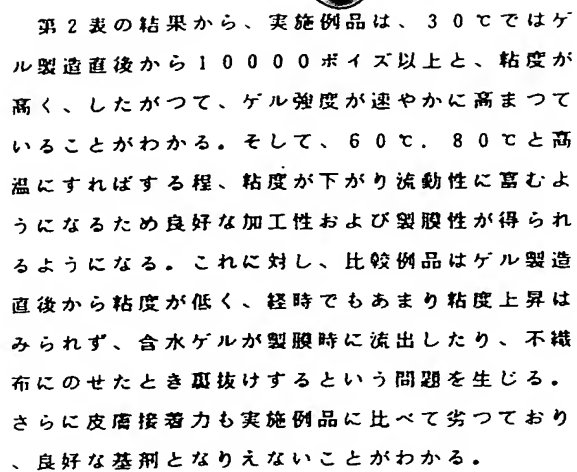 第2表の結果から、実施例品は、30℃ではゲ
ル製造直後から10000ポイズ以上と、粘度が
高く、したがつて、ゲル強度が速やかに高まつて
いることがわかる。そして、60℃.80℃と高
温にすればする程、粘度が下がり流動性に富むよ
うになるため良好な加工性および製膜性が得られ
るようになる。これに対し、比較例品はゲル製造
直後から粘度が低く、経時でもあまり粘度上昇は
みられず、含水ゲルが製膜時に流出したり、不織
布にのせたとき裏抜けするという問題を生じる。
さらに皮膚接着力も実施例品に比べて劣つており
、良好な基剤となりえないことがわかる。